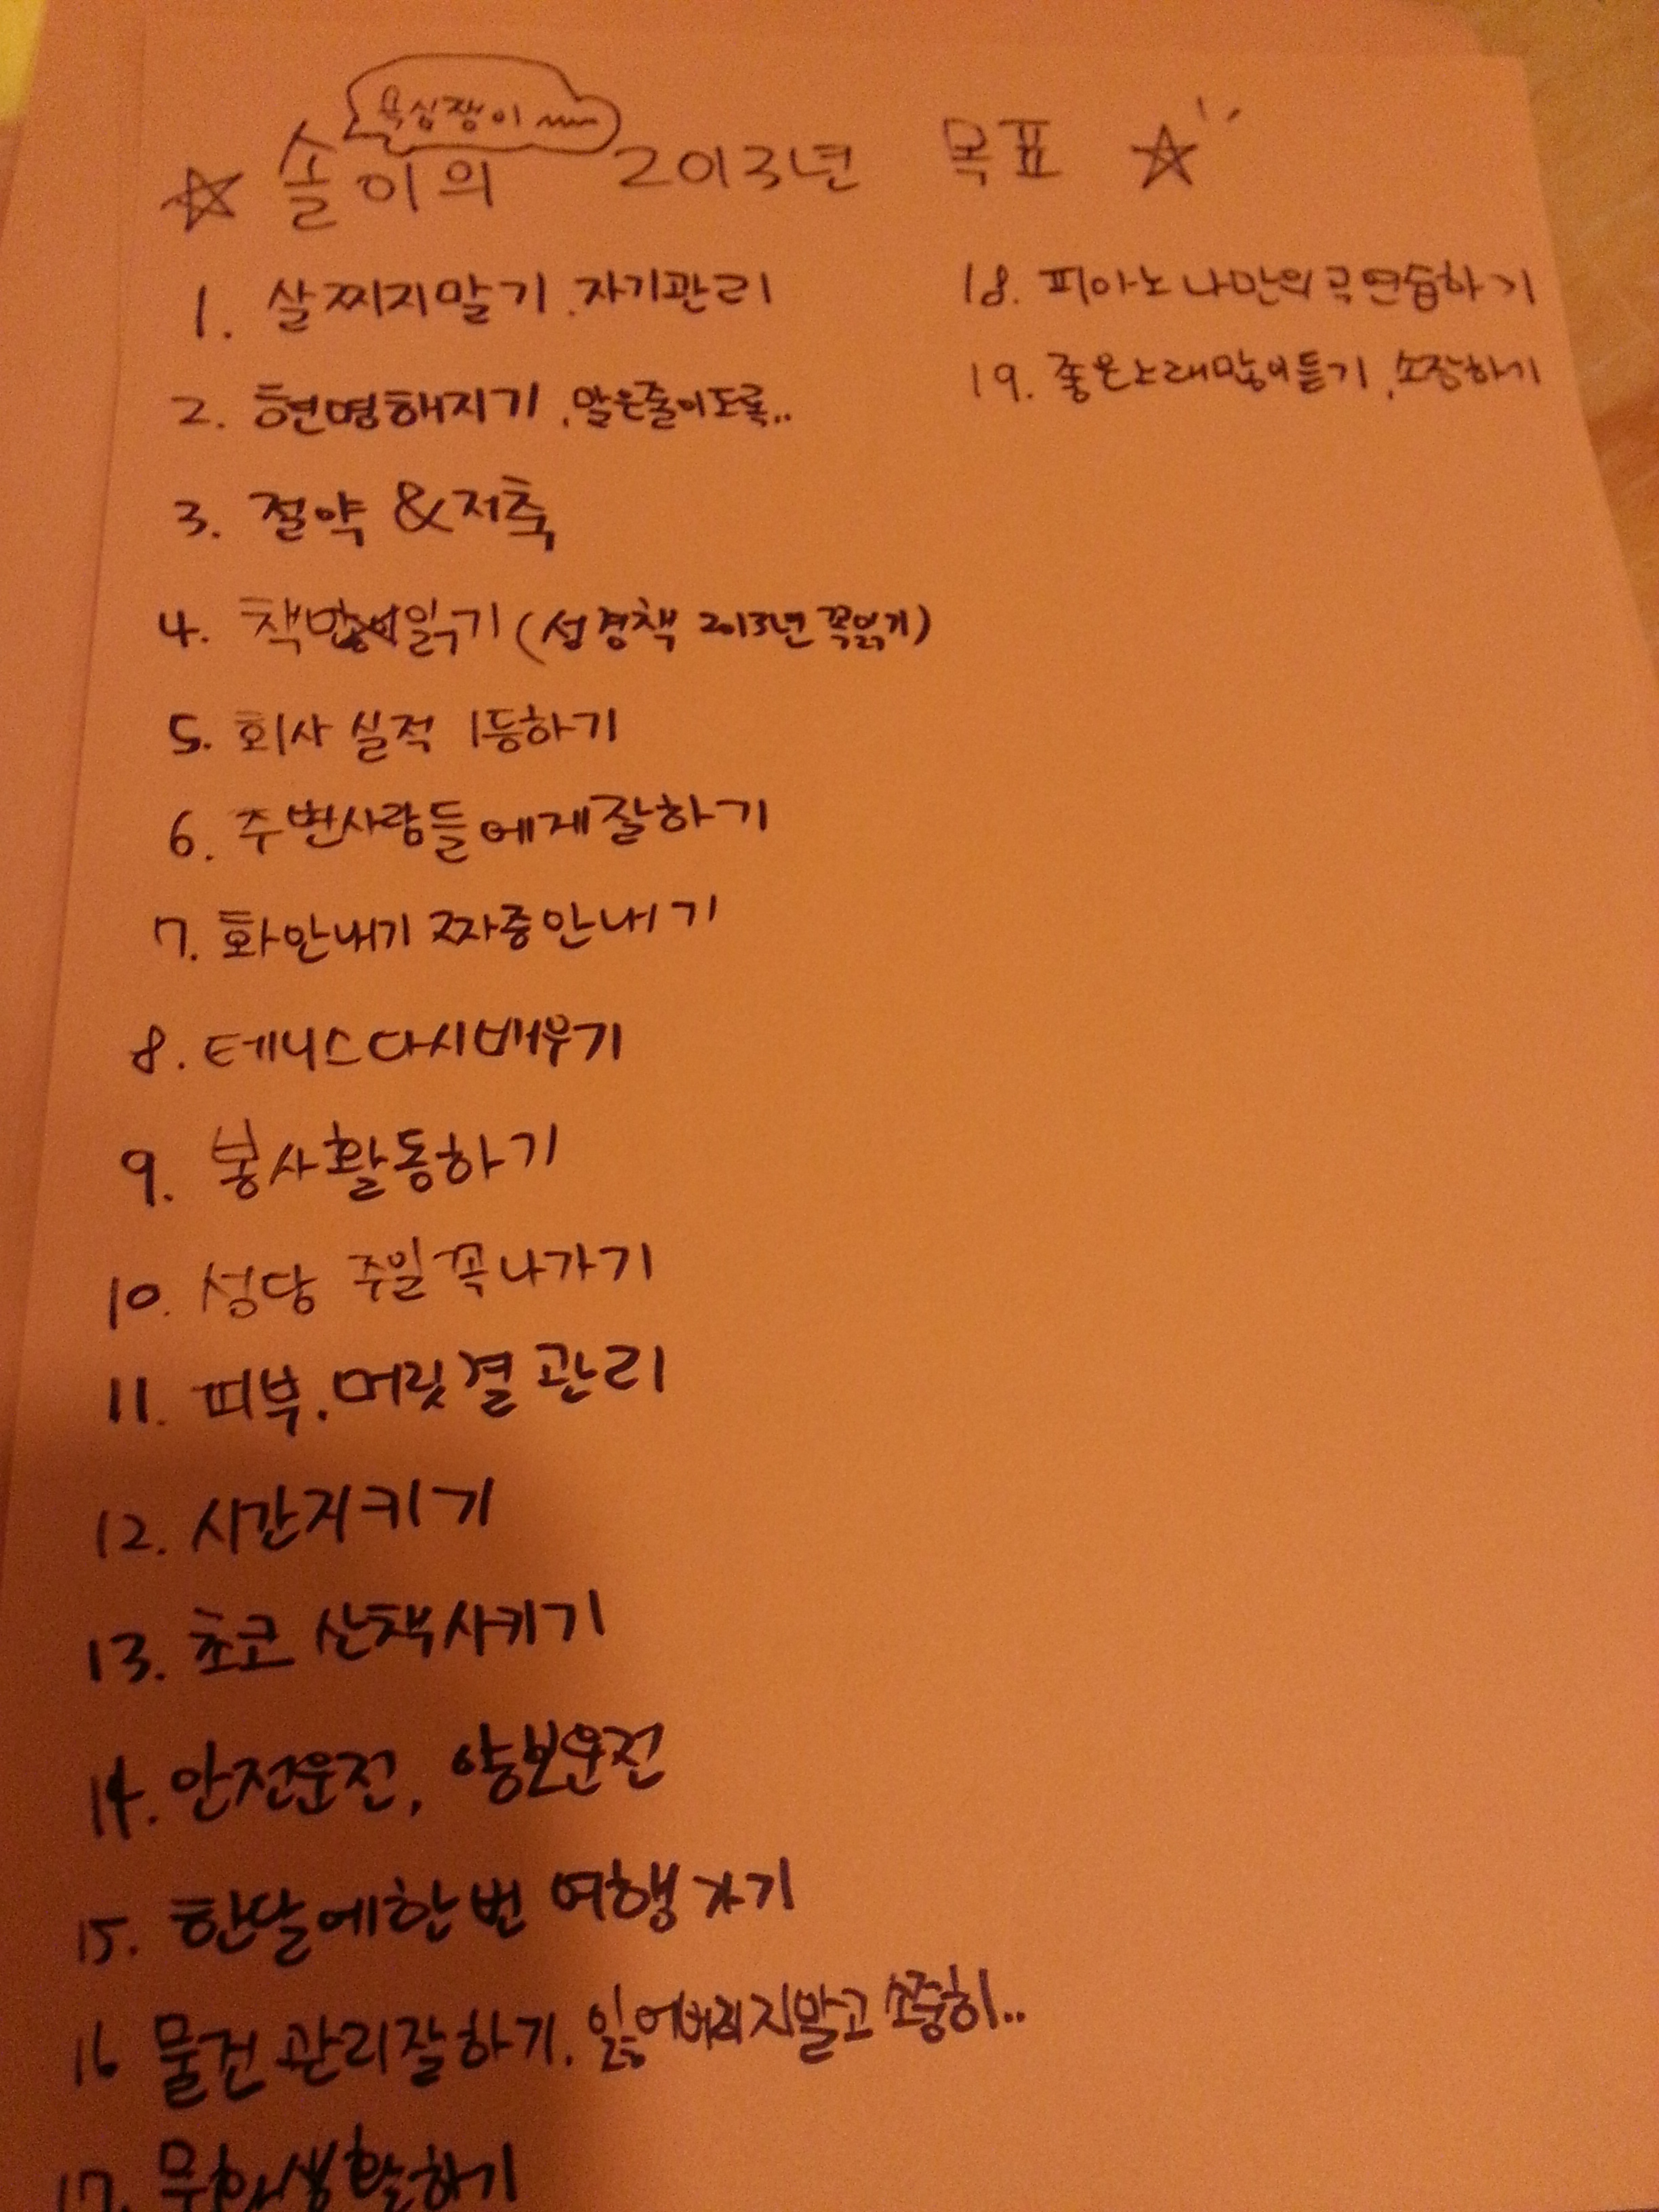 욕심쟁이
☆ 솔이의 2013년 목표 ☆
1. 살찌지말기, 자기관리
2. 현명해지기, 말은줄이도록..
3. 절약 & 저축
4. 책많이읽기 (성경책 2013년 꼭읽기)
5. 회사 실적 1등하기
6. 주변사람들에게잘하기
7. 화안내기 짜증안내기
8. 테니스다시배우기
9. 봉사활동하기
10. 성당 주일꼭나가기
11. 피부. 머릿결 관리
12. 시간지키기
13. 초코 산책시키기
14. 안전운전, 양보운전
15. 한달에한번 여행가기
16 물건관리잘하기. 잃어버리지말고 소중히..
17. 문화생활하기
18. 피아노 나만의곡연습하기
19. 좋은노래많이듣기, 소장하기